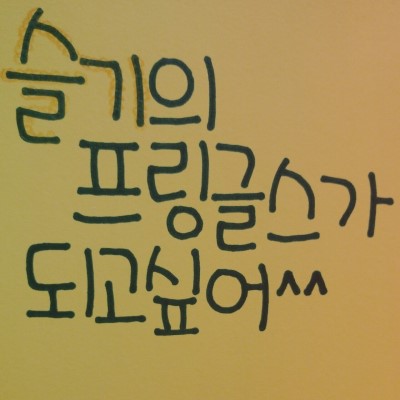 슬기의
프링글스가
되고싶어^^